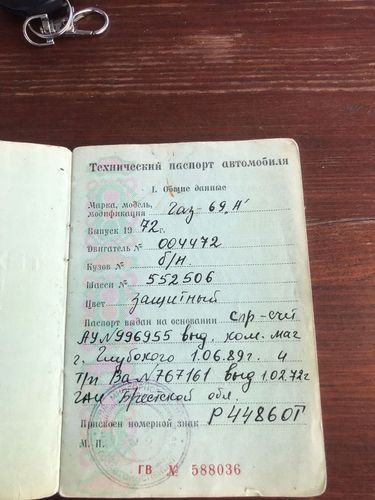 Технический паспорт автомобиля
I. Общие данные
Марка, модель,
модификация Газ-69 „А"
Выпуск 19 72 г.
Двигатель № 004472
Кузов № б/н.
Шасси № 552506
Цвет защитный
Паспорт выдан на основании спр-счёт
АУ №996955 выд. ком. маг
г. Глубокого 1.06.89г. и
т/п Ва №767161 выд 1.02.72г
ГАИ Брестской обл.
Присвоен номерной знак Р4486ОТ
М. П.
ГВ № 588036